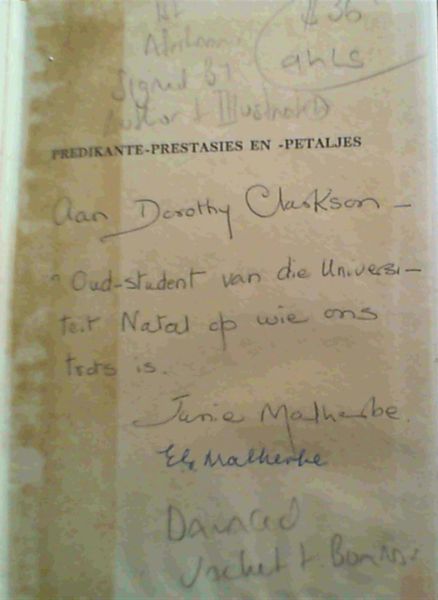 1st
$ 36
Signed By
Author & Illustrator
PREDIKANTE-PRESTASIES EN -PETALJES
Aan Dorothy Clarkson —
'n Oud-student van die Universi-
teit Natal op wie ons
trots is.
Janie Malherbe.
EG Malherbe
Damaged
Jacket &